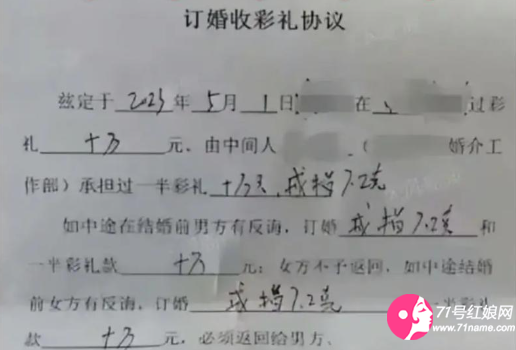 订婚收彩礼协议
兹定于 2023 年 5 月 1 日 在 过彩
礼 十万 元，由中间人 （ 婚介工
作部）承担过一半彩礼 十万元，戒指7.2克
如中途在结婚前男方有反诲，订婚 戒指7.2克 和
一半彩礼款 十万 元；女方不予返回，如中途结婚
前女方有反诲，订婚 戒指7.2克 一半彩礼
款 十万 元，必须返回给男方、
71号红娘网
www.71name.com